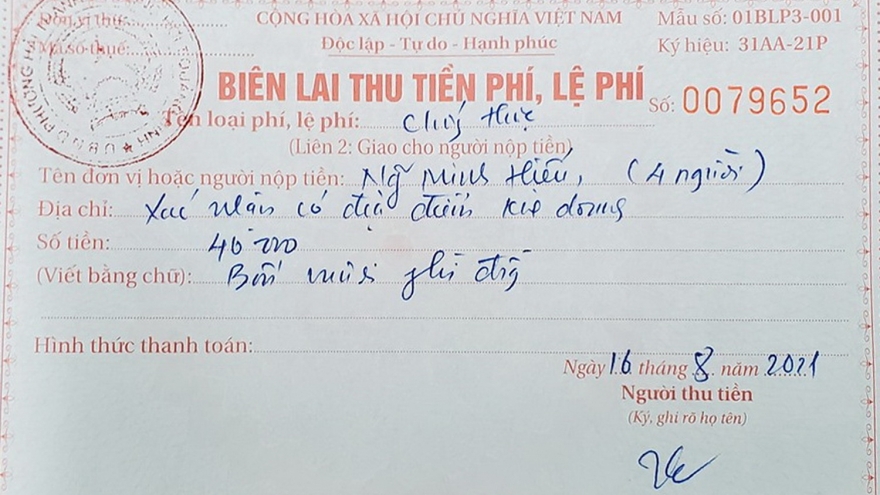 Đơn vị thu:
CỘNG HÒA XÃ HỘI CHỦ NGHĨA VIỆT NAM
Mẫu số: 01BLP3-001
Mã số thuế:
Độc lập - Tự do - Hạnh phúc
Ký hiệu: 31AA-21P
BIÊN LAI THU TIỀN PHÍ, LỆ PHÍ
Số: 0079652
Tên loại phí, lệ phí: Chứng thực
(Liên 2: Giao cho người nộp tiền)
Tên đơn vị hoặc người nộp tiền: Ng Minh Hiếu, (4 người)
Địa chỉ: Xác nhận có địa điểm
Số tiền: 40 000
(Viết bằng chữ): Bốn mươi đồng
Hình thức thanh toán:
Ngày 16 tháng 8 năm 2021
Người thu tiền
(Ký, ghi rõ họ tên)